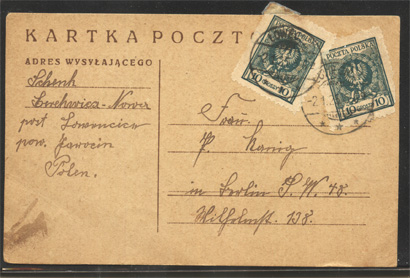 KARTKA POCZTO
ADRES WYSYŁAJĄCEGO
Schenk
Nowa
post Lowencice
pow. Jarocin
Polen.
POCZTA POLSKA
10 GROSZY 10
POCZTA POLSKA
10 GROSZY 10
Frau
P. König
in Berlin S. W. 48.
Wilhelmstr. 138.